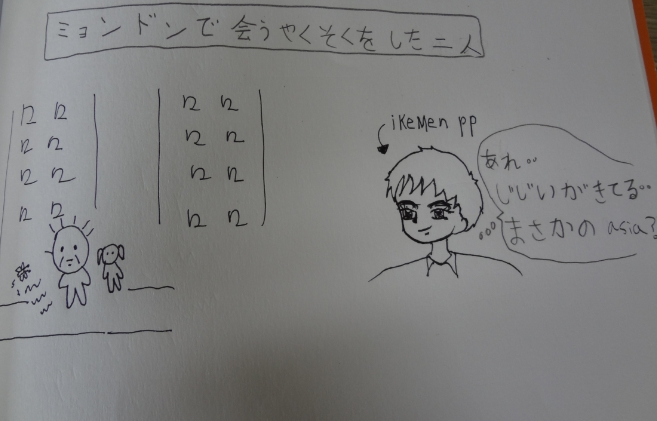 ミョンドンで会うやくそくをした二人
ikemen pp
あれ..
じじいがきてる..
まさかのasia?